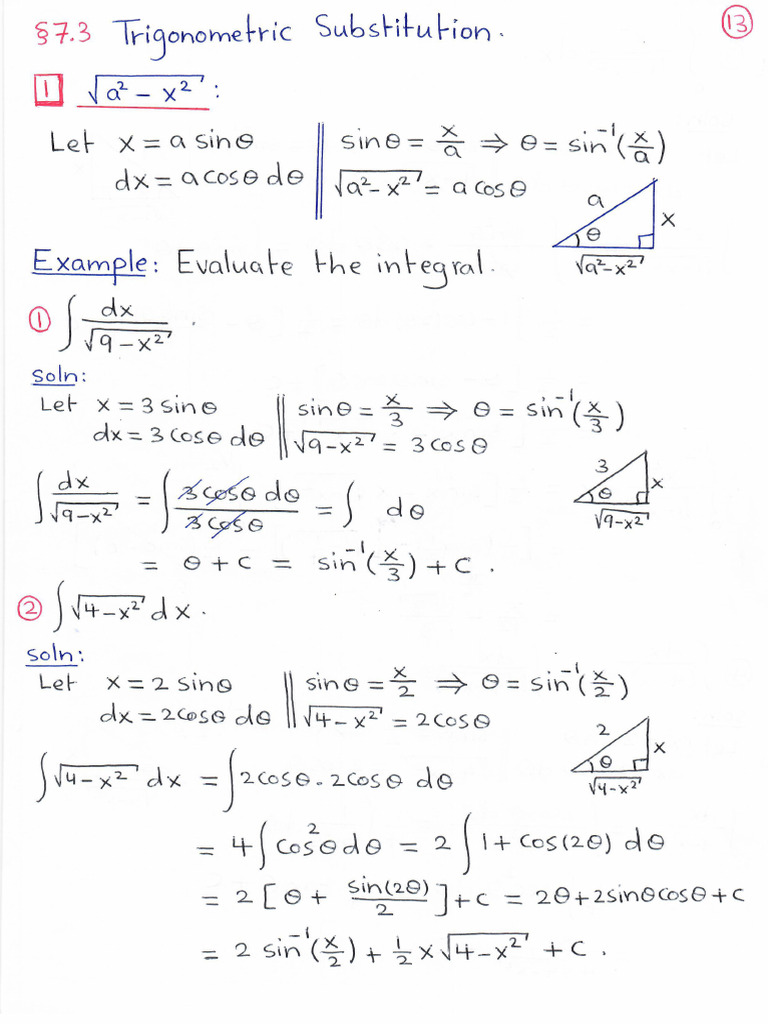 §7.3 Trigonometric Substitution. 13
1 √(a² − x²) :
Let x = a sinθ || sinθ = x/a ⇒ θ = sin⁻¹(x/a)
dx = a cosθ dθ || √(a²−x²) = a cosθ
a
x
θ
√(a²−x²)
Example: Evaluate the integral.
① ∫ dx/√(9−x²) .
soln:
Let x = 3 sinθ || sinθ = x/3 ⇒ θ = sin⁻¹(x/3)
dx = 3 cosθ dθ || √(9−x²) = 3 cosθ
3
x
θ
√(9−x²)
∫ dx/√(9−x²) = ∫ 3cosθ dθ/3cosθ = ∫ dθ
= θ + c = sin⁻¹(x/3) + c .
② ∫ √(4−x²) dx .
soln:
Let x = 2 sinθ || sinθ = x/2 ⇒ θ = sin⁻¹(x/2)
dx = 2cosθ dθ || √(4−x²) = 2cosθ
2
x
θ
√(4−x²)
∫ √(4−x²) dx = ∫ 2cosθ . 2cosθ dθ
= 4 ∫ cos²θ dθ = 2 ∫ 1 + cos(2θ) dθ
= 2 [ θ + sin(2θ)/2 ] + c = 2θ + 2sinθcosθ + c
= 2 sin⁻¹(x/2) + 1/2 x √(4−x²) + c .